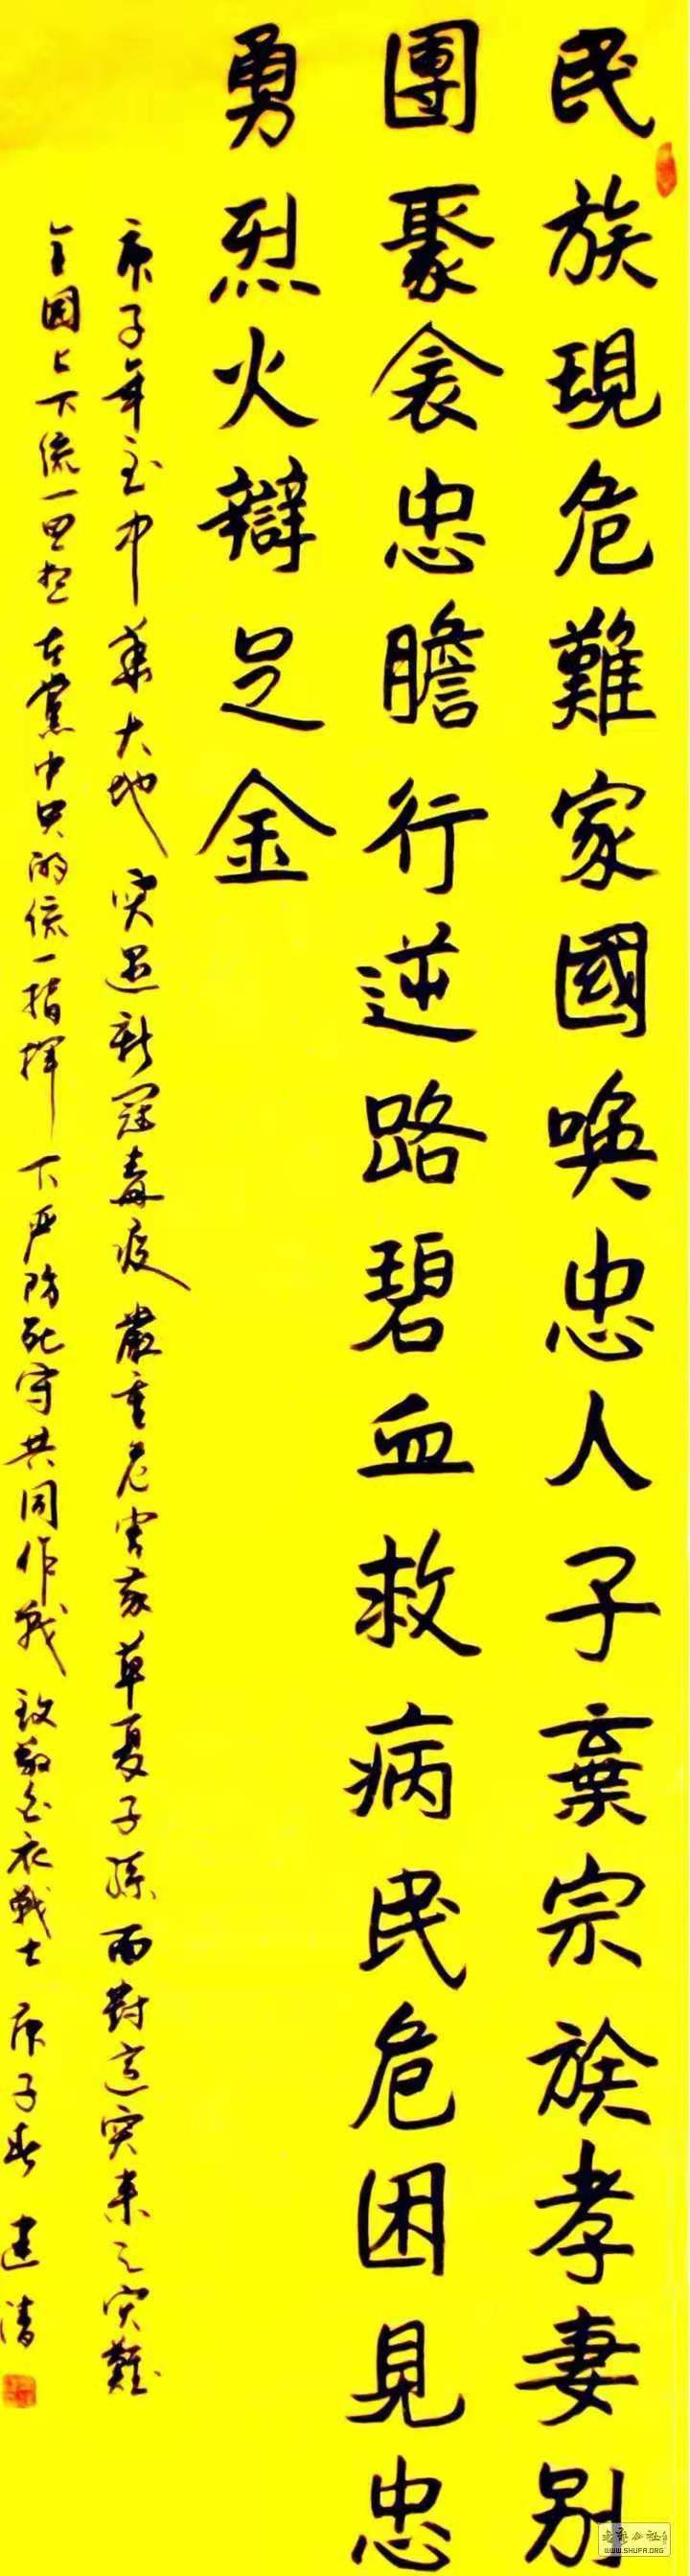 民族現危難家國喚忠人子棄宗族孝妻别
團聚衾忠瞻行逆路碧血救病民危困見忠
勇烈火辯足金
庚子年至中華大地突遇新冠毒疫嚴重危害我華夏子孫面對這突来之灾難
全國上下统一思想在黨中央的统一指揮下严防死守共同作战致敬白衣戰士庚子春建清
WWW.SHUFA.ORG